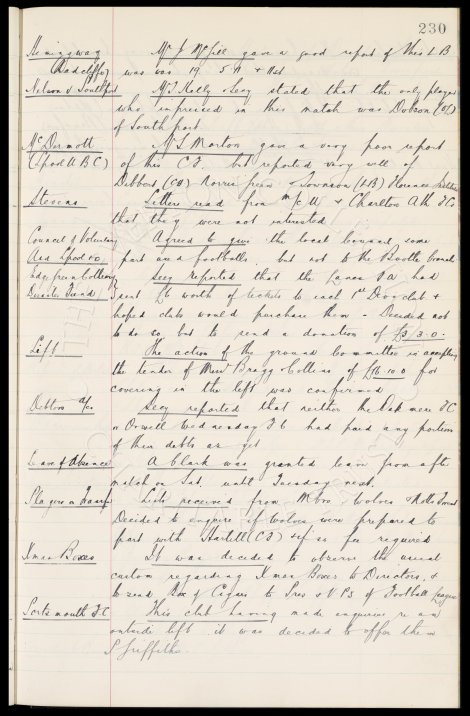 230
Hemingway Mr J McGill gave a good report of this L.B
(Radcliffe) was 19. 5.9 + 11st
Nelson v Southport Mr T. Kelly Secy stated that the only player
who impressed in this match was Dobson
of Southport
McDermott Mr L. Morton gave a very poor report
(L'pool A B C) of this C.F. but reported very well of
Norris + Townson (L.B) Florence
Stevens Letters read from + Charlton Ath F.C.
that they were not interested
Council of Voluntary Agreed to give the local council some
Aid L'pool part used footballs, but not to the Bootle branch
Secy reported that the Lancs F.A. had
Fund sent £6 worth of tickets to each 1st Divn club +
hoped clubs would purchase them - Decided not
to do so, but to send a donation of £3/3/0.
Lift The action of the ground Committee in accepting
the tender of Messrs Bragg Collins of for
covering in the lift was confirmed
Debtors a/c Secy reported that neither the F.C
n Orwell Wednesday F.C had paid any portion
of their debts as yet
Leave of Absence A. Clark was granted leave from after
match on Sat. until Tuesday next.
Players on Transfer Lists received from Wolves + Notts Forest
Decided to enquire if Wolves were prepared to
part with Hartill (C.F) + if so fee required
Xmas Boxes It was decided to observe the usual
custom regarding Xmas Boxes to Directors, +
to send Box of Cigars to Pres + V.P's of Football League
Portsmouth F.C This club having made enquiries re an
outside left it was decided to offer them
Griffiths.